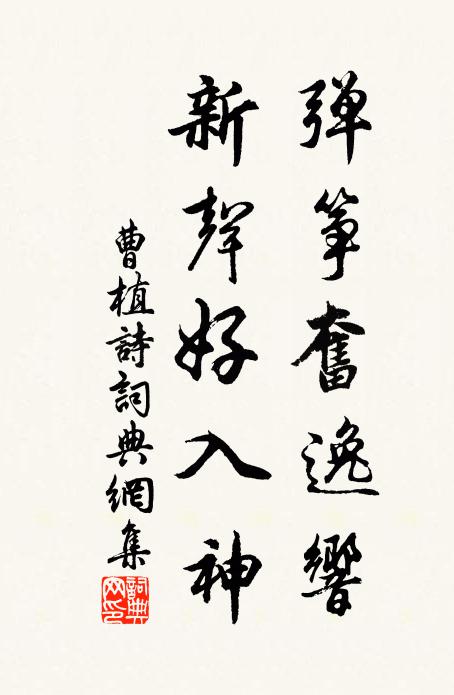 弹箏奮逸響
新聲好入神
曹植詩詞典網集
詞典网印